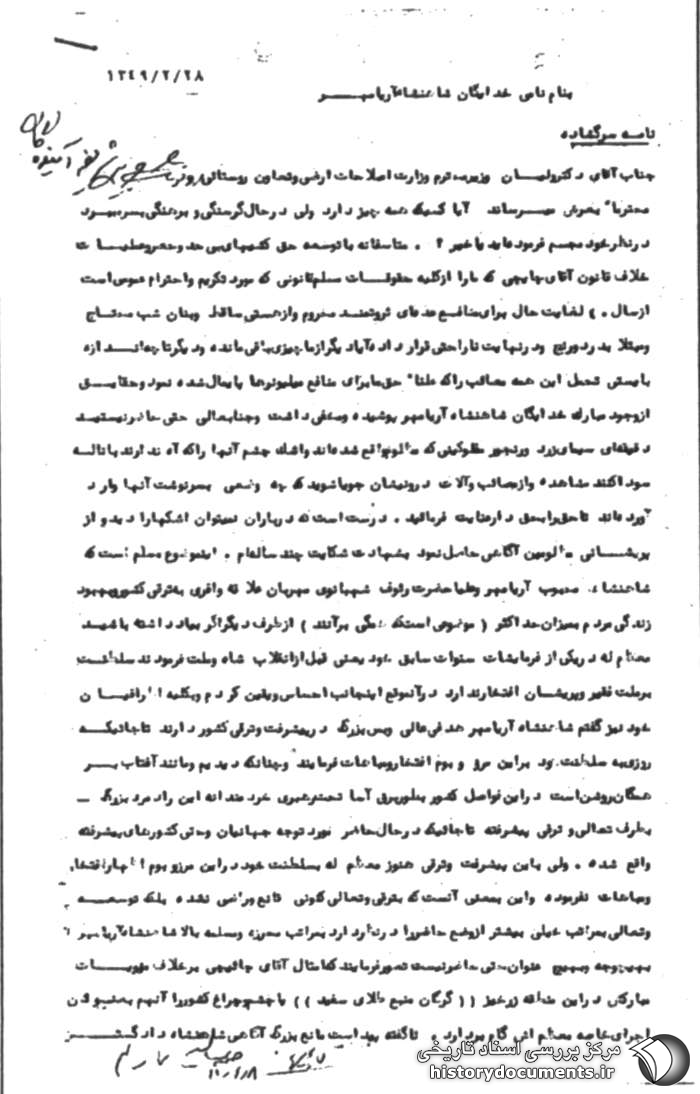 ۱۳۴۹/۲/۲۸
بنام نامی خدایگان شاهنشاه آریامهر
نامه سرگشاده
جناب آقای دکتر ولیان وزیر محترم وزارت اصلاحات ارضی و تعاون روستائی
محترما" بعرض میرساند آیا کسیکه همه چیز دارد ولی در حال گرسنگی و برهنگی بسر میبرد
در نظر خود مجسم فرموده‌اید یا خیر ؟ . متاسفانه با توسعه حق کشیهای بی حد و حصر و عملیات
خلاف قانون آقای چایچی که ما را از کلیه حقوقات مسلم قانونی که مورد تکریم و احترام عموم است
از سال ۴۰ لغایت حال برای منافع عده‌ای ثروتمند محروم و از هستی ساقط وبنان شب محتاج
ومبتلا بدرد و رنج و در نهایت ناراحتی قرار داده آیا دیگر از ما چیزی باقی مانده و دیگر تا چه اندازه
بایستی تحمل این همه مصائب را که علنا" حق ما برای منافع میلیونرها پایمال شده نمود و حقایق
از وجود مبارک خدایگان شاهنشاه آریامهر پوشیده و مخفی داشت وجنابعالی حتی حاضر نیستید
دقیقه‌ای سیمای زرد ورنجور مفلوکینی که واقع شده‌اند واشک چشم آنها را که آه ندارند با ناله
سودا کنند مشاهده واز مصائب وآلات درونیشان جویا شوید که چه وضعی بسرنوشت آنها وارد
آورده‌اند تا حق را بحق دار عنایت فرمائید . درست است که در باران نمیتوان اشکها را دید و از
پریشانی مظلومین آگاهی حاصل نمود بشهادت شکایت چند ساله‌ام . اینموضوع مسلم است که
شاهنشاه محبوب آریامهر وعلیا حضرت رئوف شهبانوی مهربان علاقه وافری به ترقی کشور وبهبود
زندگی مردم بمیزان حداکثر ( موضوعی است که همگی برآنند ) از طرف دیگر اگر بیاد داشته باشید
معظم له در یکی از فرمایشات سنوات سابق خود یعنی قبل از انقلاب شاه وملت فرمودند سلطنت
بر ملت فقیر وپریشان افتخار ندارد در آنموقع اینجانب احساس ویقین کردم وبکلیه اطرافیان
خود نیز گفتم شاهنشاه آریامهر هدفی عالی وبس بزرگ در پیشرفت وترقی کشور دارند تا جائیکه
روزی به سلطنت خود بر این مرز و بوم افتخار ومباهات فرمایند وچنانکه دیدیم ومانند آفتاب بر
همگان روشن است در این فواصل کشور بطور برق آسا تحت رهبری خردمندانه این راد مرد بزرگ
بطرف تعالی و ترقی پیشرفته تا جائیکه در حال حاضر مورد توجه جهانیان وحتی کشورهای پیشرفته
واقع شده . ولی با این پیشرفت وترقی هنوز معظم له بسلطنت خود در این مرز و بوم اظهار افتخار
ومباهات نفرموده واین بمعنی آنست که بترقی وتعالی کنونی قانع وراضی نشده بلکه توسعه
وتعالی بمراتب خیلی بیشتر از وضع حاضر را در نظر دارد بمراتب محرزه ومسلمه بالا شاهنشاه آریامهر
بهیچوجه وبهیچ عنوان حتی حاضر نیست تصور فرمایند که امثال آقای چائیچی بر خلاف منویات
مبارکش در این منطقه زرخیز (( گرگان منبع طلای سفید )) یا چشم وچراغ کشور را آنهم بعنوان
اجرای خاصه معظم اش گام بردارد . ناگفته پیداست مانع بزرگ آگاهی شاهنشاه دادگستر
مرکز بررسی اسناد تاریخی
historydocuments.ir